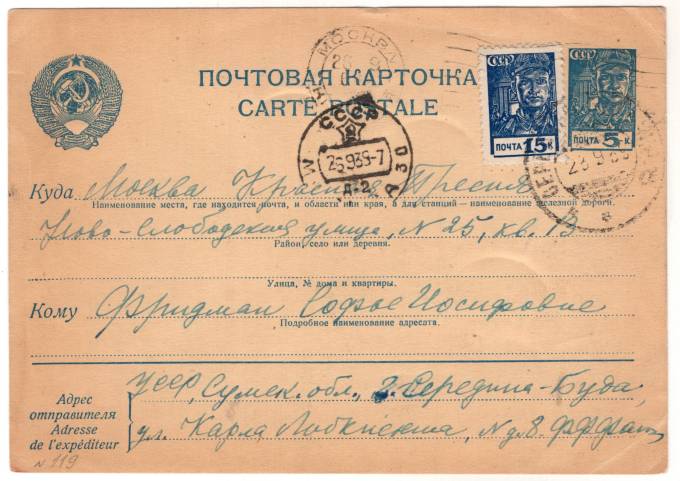 МОСКВА
ПОЧТОВАЯ КАРТОЧКА
CARTE POSTALE
СССР
ПОЧТА 15 К
СССР
ПОЧТА 5 К
СССР
25.9.39-7
Д-2
23.9.39
Куда Москва Красная Пресня
Наименование места, где находится почта, и области или края, а для станций – наименование железной дороги.
Ново-Слободская улица, N 25, кв. 13
Район, село или деревня.
Улица, № дома и квартиры.
Кому Фридман Софье Иосифовне
Подробное наименование адресата.
Адрес отправителя
Adresse de l'expéditeur
УССР, Сумск. обл., г. Середина-Буда,
ул. Карла Либкнехта, N д. 8.
N 119